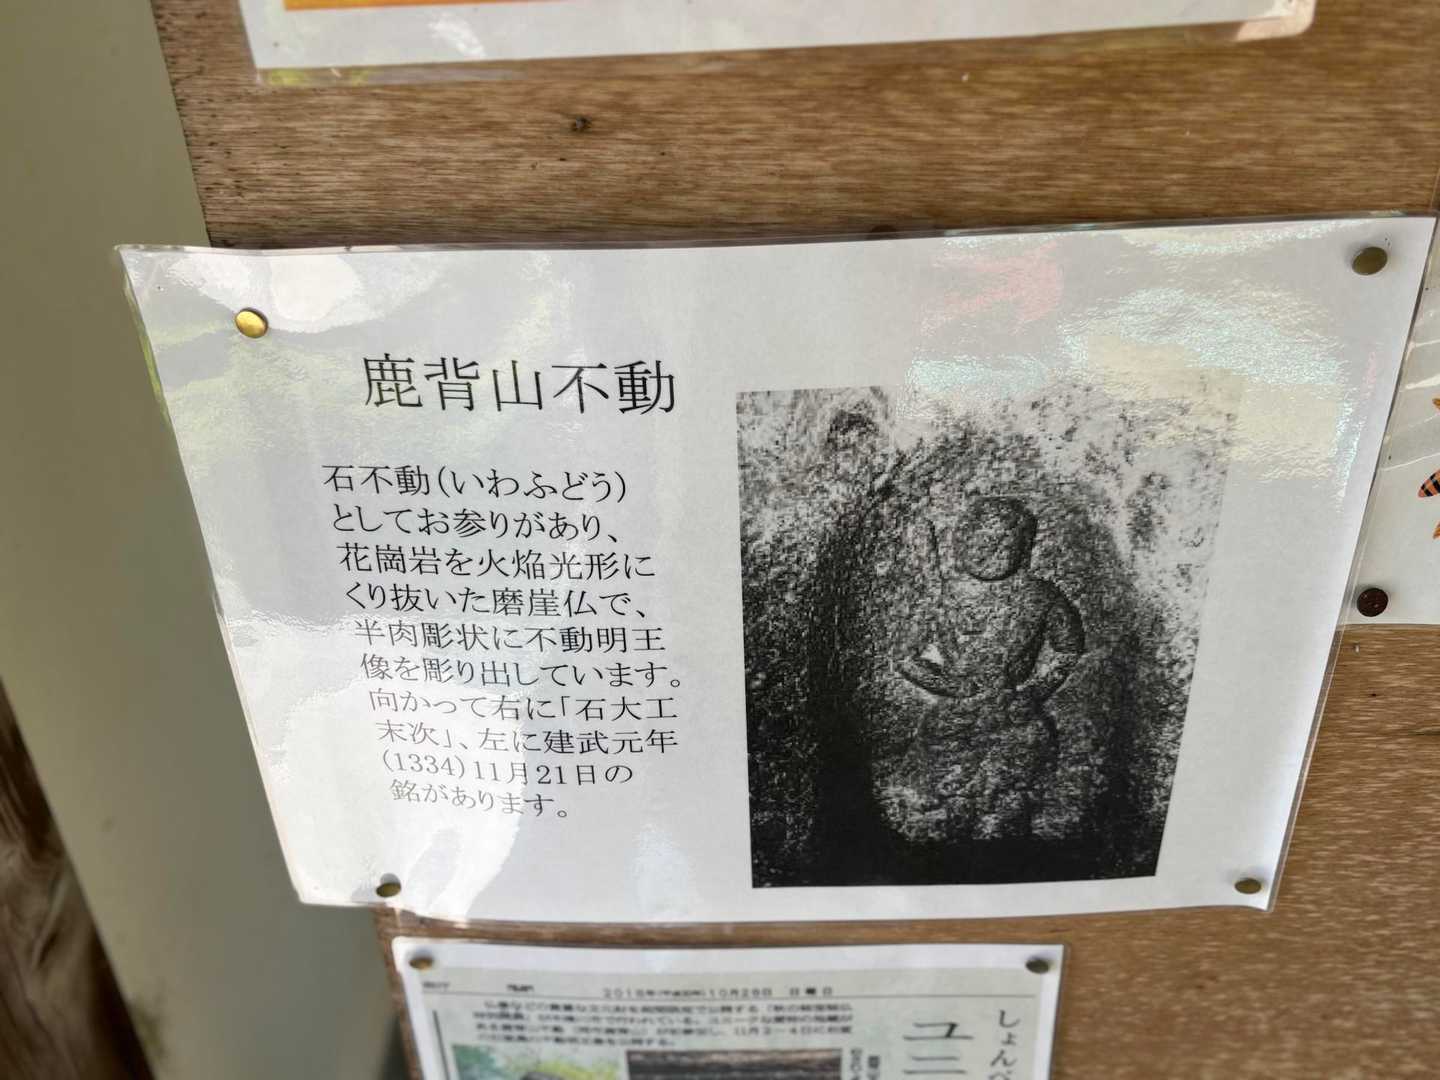 鹿背山不動
石不動(いわふどう)
としてお参りがあり、
花崗岩を火焔光形に
くり抜いた磨崖仏で、
半肉彫状に不動明王
像を彫り出しています。
向かって右に「石大工
末次」、左に建武元年
(1334)11月21日の
銘があります。
日曜日
しょんべ
ユニ